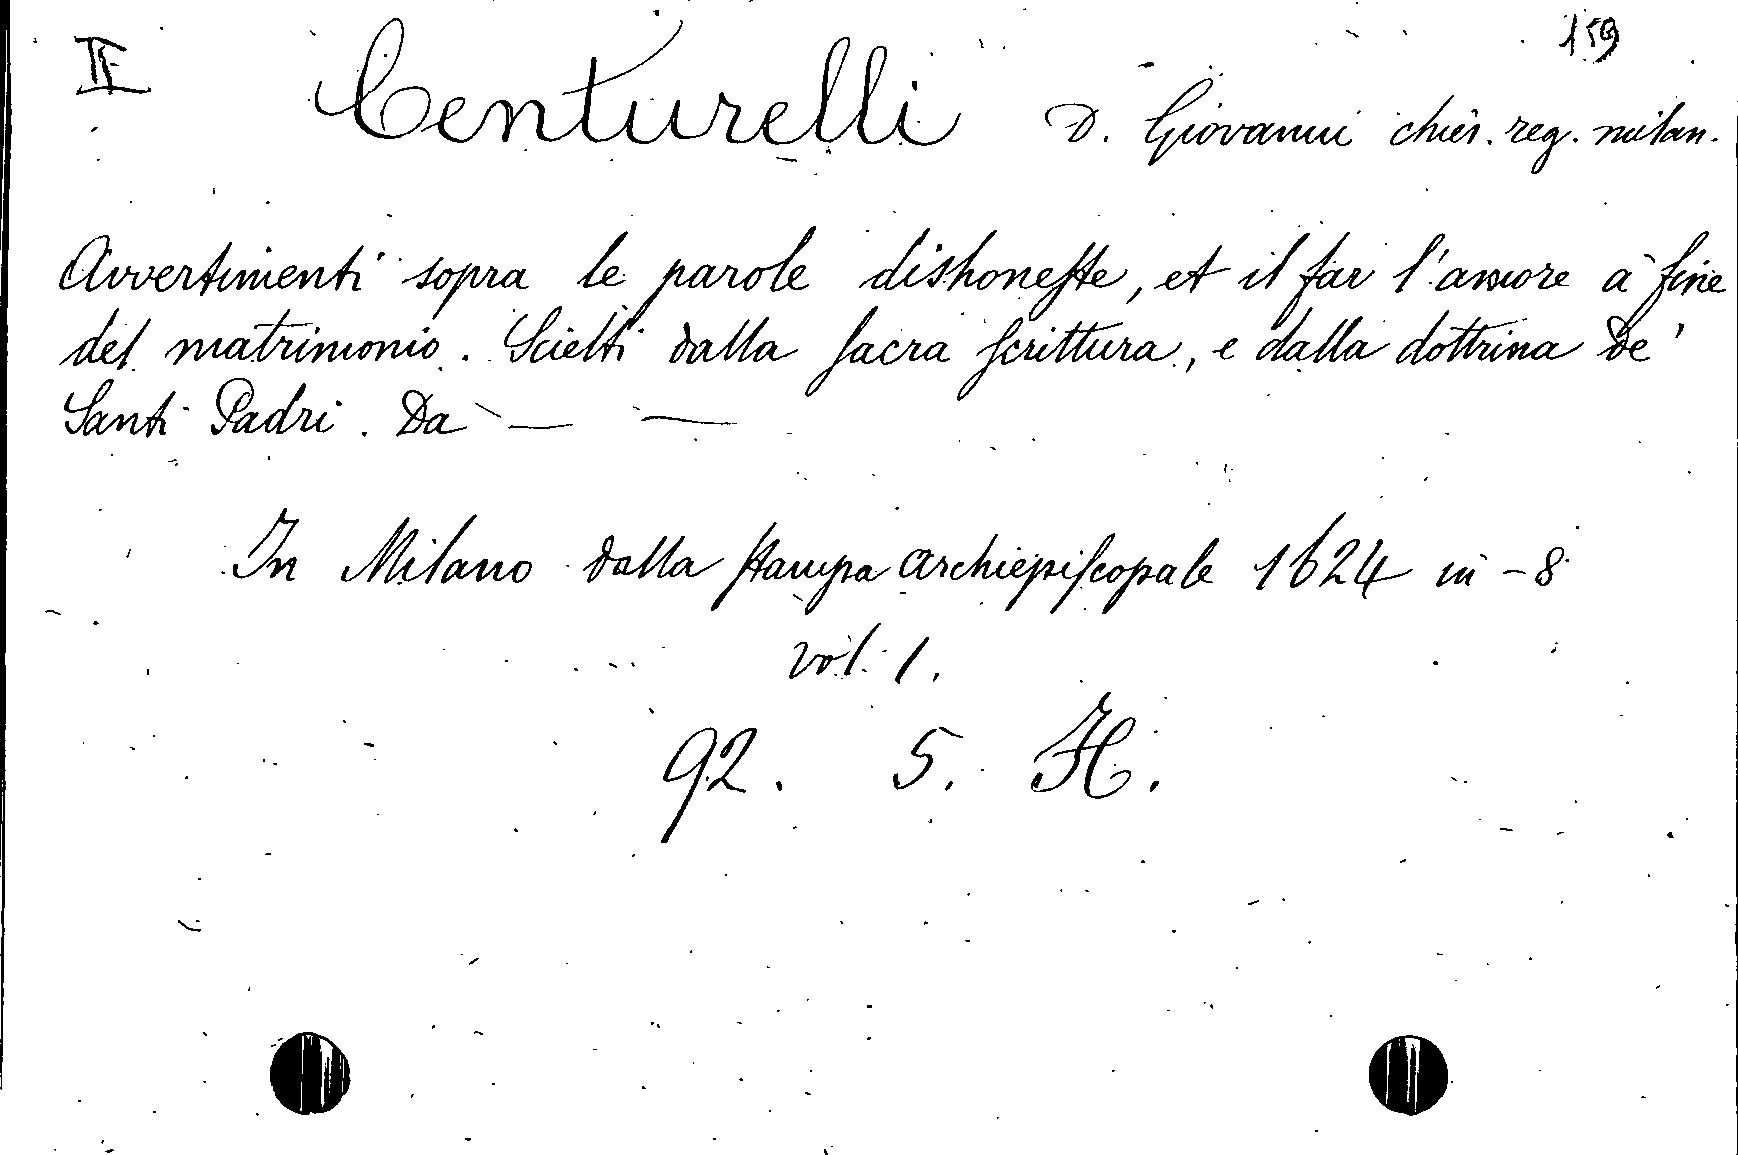 II 159
Centurelli D. Giovanni chier. reg. milan.
Avvertimenti sopra le parole dishoneste, et il far l'amore à fine
del matrimonio. Scielti dalla sacra scrittura, e dalla dottrina de'
Santi Padri. Da — —
In Milano dalla stampa archiepiscopale 1624 in - 8
vol. 1.
92. 5. H.